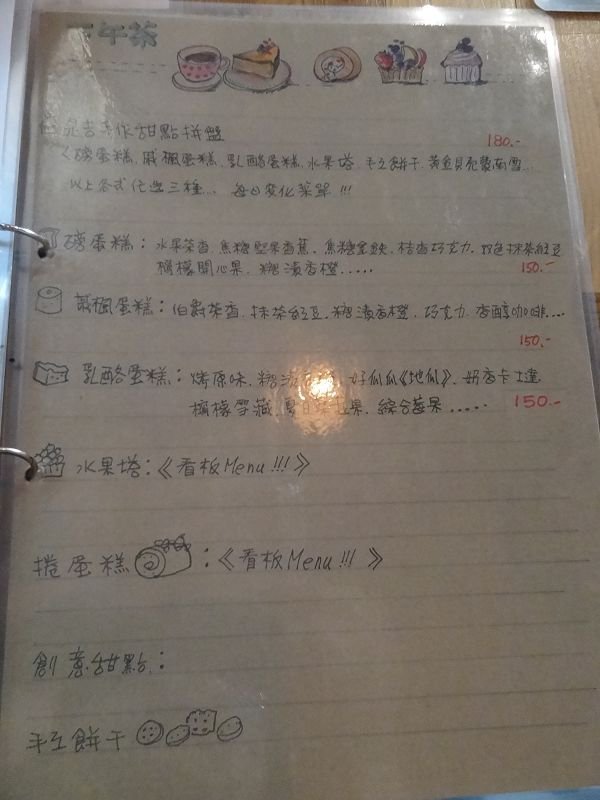 下午茶
手作甜點拼盤 180.-
《磅蛋糕.戚楓蛋糕.乳酪蛋糕.水果塔.手工餅干.黃金貝殼
以上各式任選三種... 每日變化菜單!!!
磅蛋糕:水果茶香.焦糖堅果香蕉.焦糖金鑽.桔香巧克力.双色抹茶紅豆
檸檬開心果.糖漬香橙..... 150.-
戚楓蛋糕:伯爵茶香.抹茶紅豆.糖漬香橙.巧克力.香醇咖啡...
150.-
乳酪蛋糕:烤原味.糖漬 好瓜瓜《地瓜》.奶香卡士達
檸檬雪藏.夏日 果.綜合莓果..... 150.-
水果塔:《看板Menu!!!》
捲蛋糕:《看板Menu!!!》
創意甜點:
手工餅干